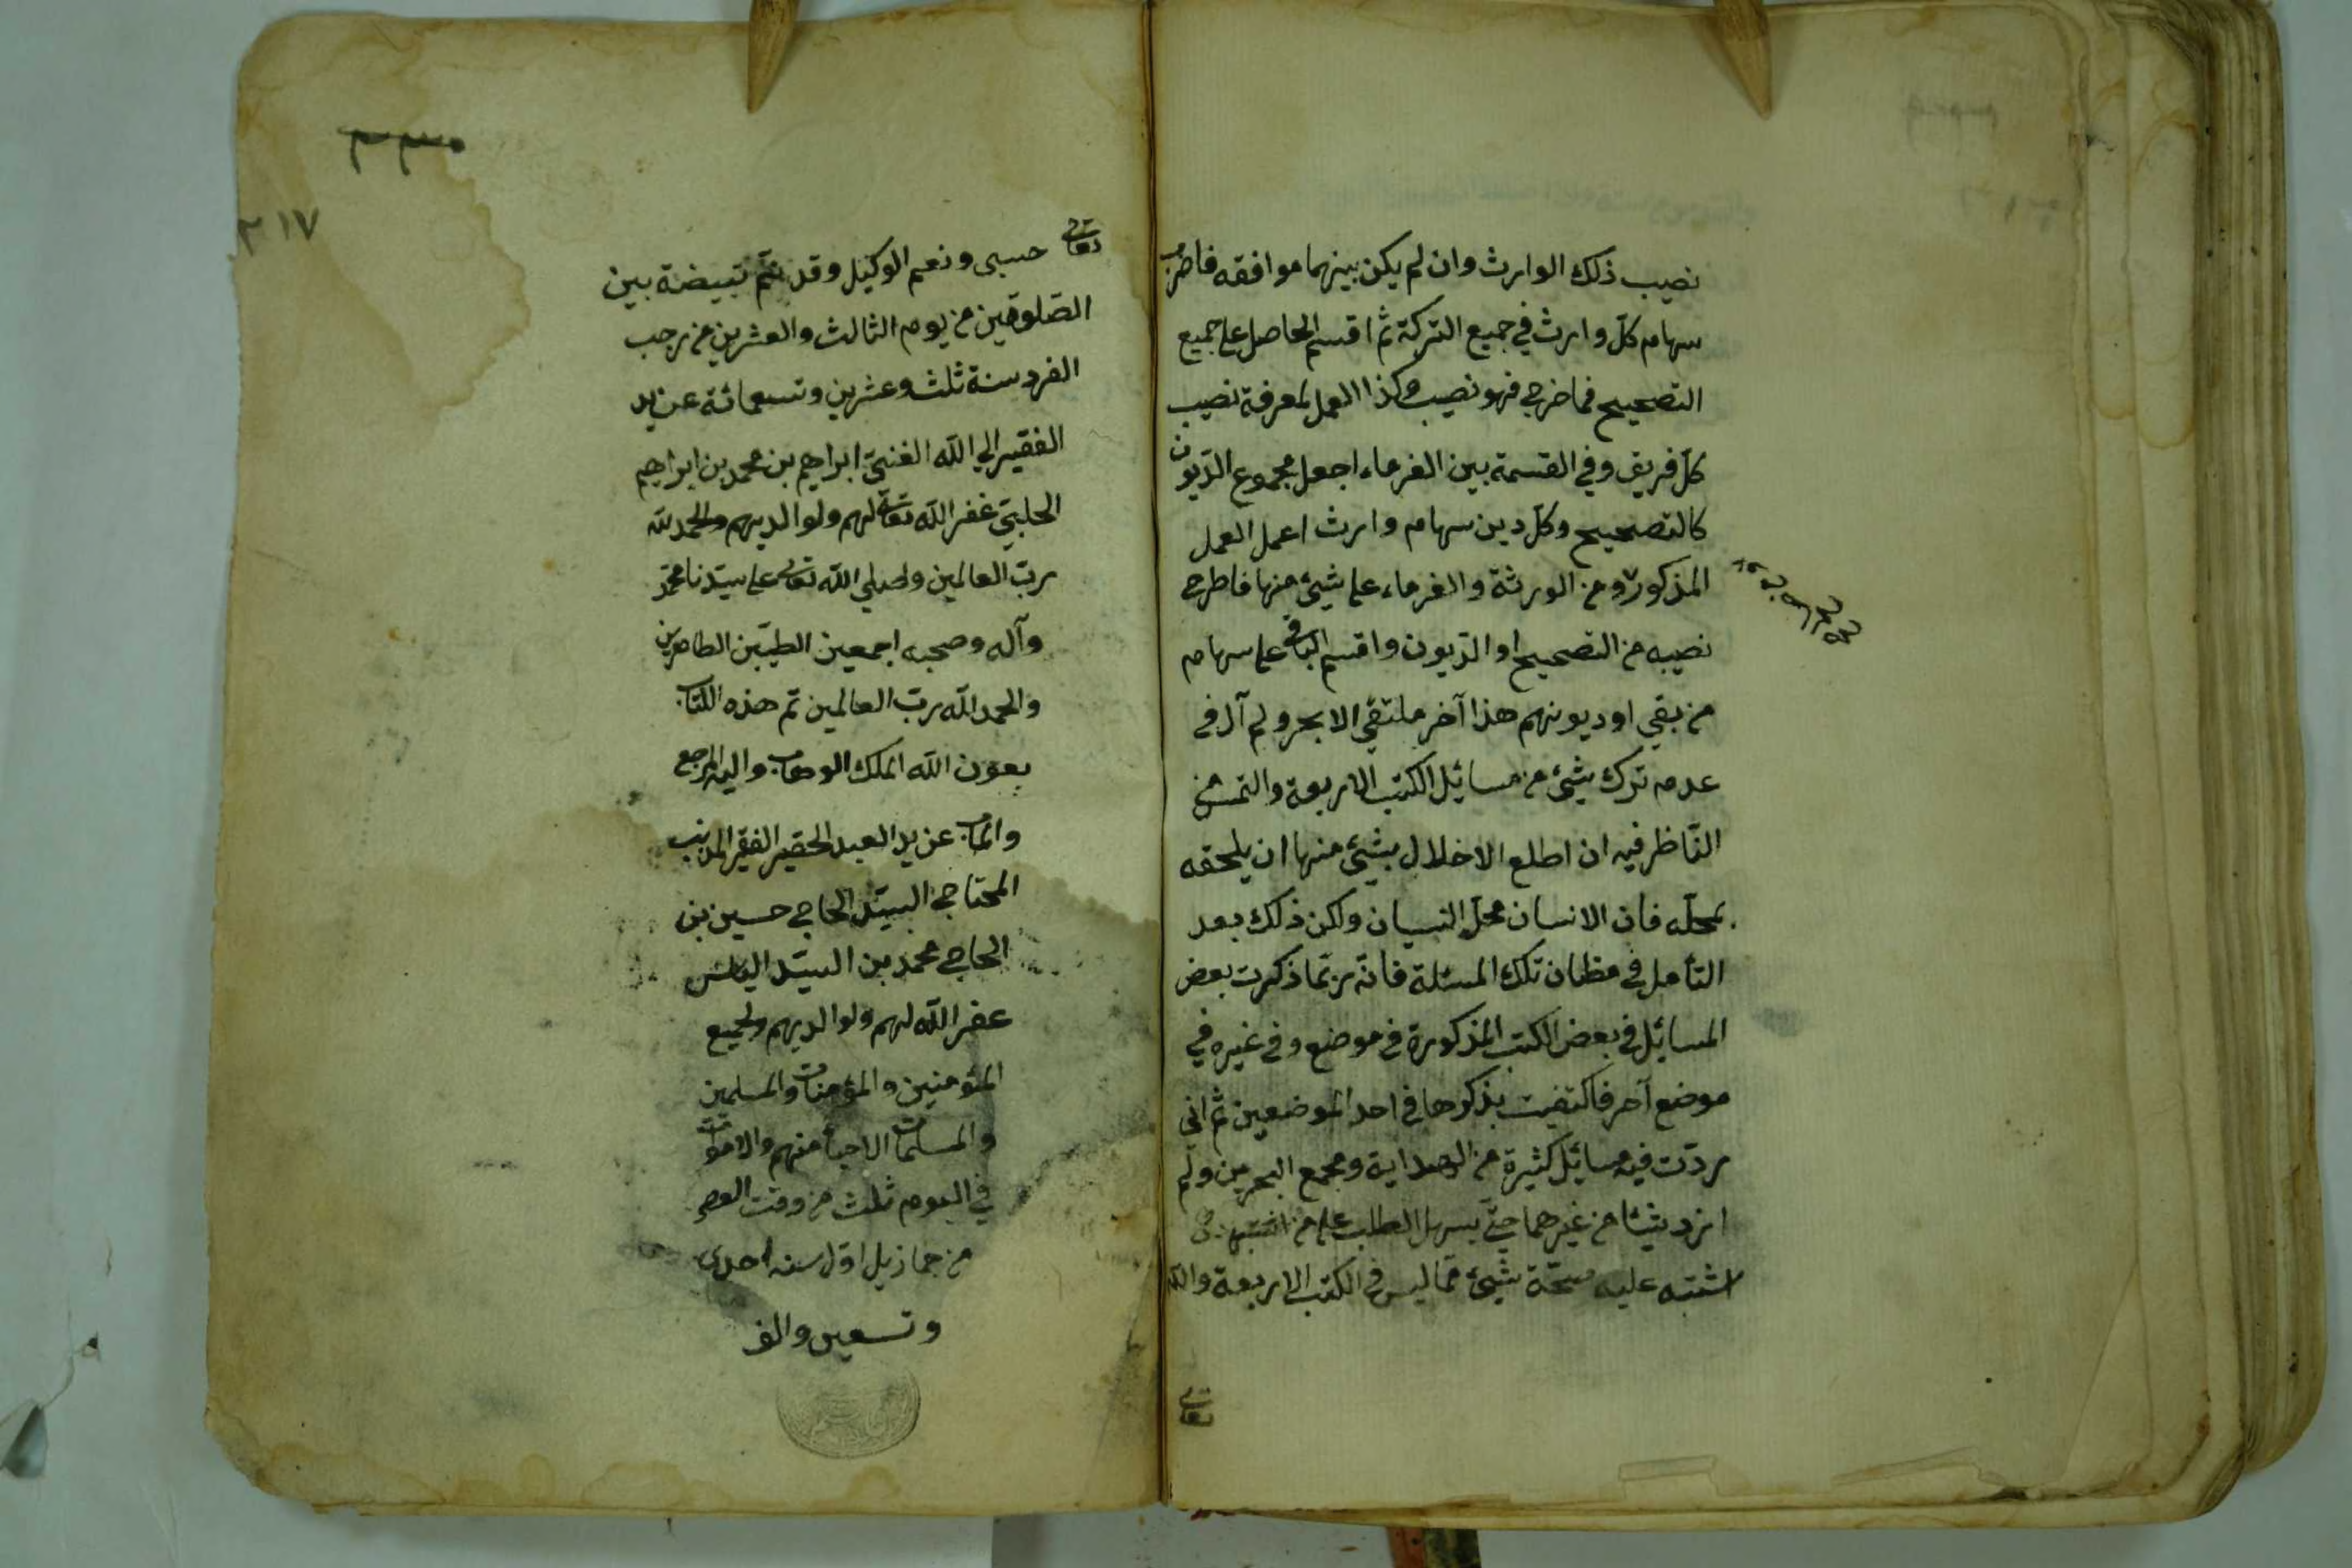 نصيب ذلك الوارث وان لم يكن بينهما موافقه فاضرب
سهام كلّ وارث في جميع التركة ثم اقسم الحاصل على جميع
التصحيح فما خرج فهو نصيبه وكذا العمل لمعرفة نصيب
كلّ فريق وفي القسمة بين الغرماء اجعل مجموع الديون
كالتصحيح وكلّ دين سهام وارث اعمل العمل
المذكور ومن الورثة والغرماء على شيئ منها فاطرح
نصيبه من التصحيح او الديون واقسم الباقي على سهام
من بقي او ديونهم هذا آخر ملتقى الابحر ولم آل في
عدم ترك شيئ من مسائيل الكتب الاربعة والتمس من
النّاظر فيه ان اطلع الاخلال بشيئ منها ان يلحقه
بمحلّه فان الانسان محلّ النسيان ولكن ذلك بعد
التأمل في مظان تلك المسئلة فانّه ربّما ذكرت بعض
المسائيل في بعض الكتب المذكورة في موضع وفي غيره في
موضع آخر فاكتفيت بذكرها في احد الموضعين ثم اني
زدت فيه مسائيل كثيرة من الهداية ومجمع البحرين ولم
ازد شيئا من غيرهما حتّى يسهل الطلب على من
اشتبه عليه صحّة شيئ ممّا ليس في الكتب الاربعة والله
تعالى
٣٣٠
٢١٧
تعالى حسبي ونعم الوكيل وقد تمّ تبييضه بين
الصّلوتين من يوم الثالث والعشرين من رجب
الفرد سنة ثلث وعشرين وتسعمائة عن يد
الفقير الي اللّه الغنيّ ابراهيم بن محمد بن ابراهيم
الحلبيّ غفر اللّه تعالى لهم ولوالديهم والحمد للّه
ربّ العالمين وصلي اللّه تعالى على سيّدنا محمّد
وآله وصحبه اجمعين الطيّبين الطاهرين
والحمد للّه ربّ العالمين تمّ هذه الكتاب
بعون اللّه الملك الوهاب واليه المرجع
والمآب عن يد العبد الحقير الفقير المذنب
المحتاج السيّد الحاجي حسين بن
الحاجي محمد بن السيّد
غفر اللّه لهم ولوالديهم ولجميع
المؤمنين والمؤمنات والمسلمين
والمسلمات الاحياء منهم والاموات
في اليوم ثلث من وقت العصر
من جماذيل اوّل سنه احدى
وتسعين والف